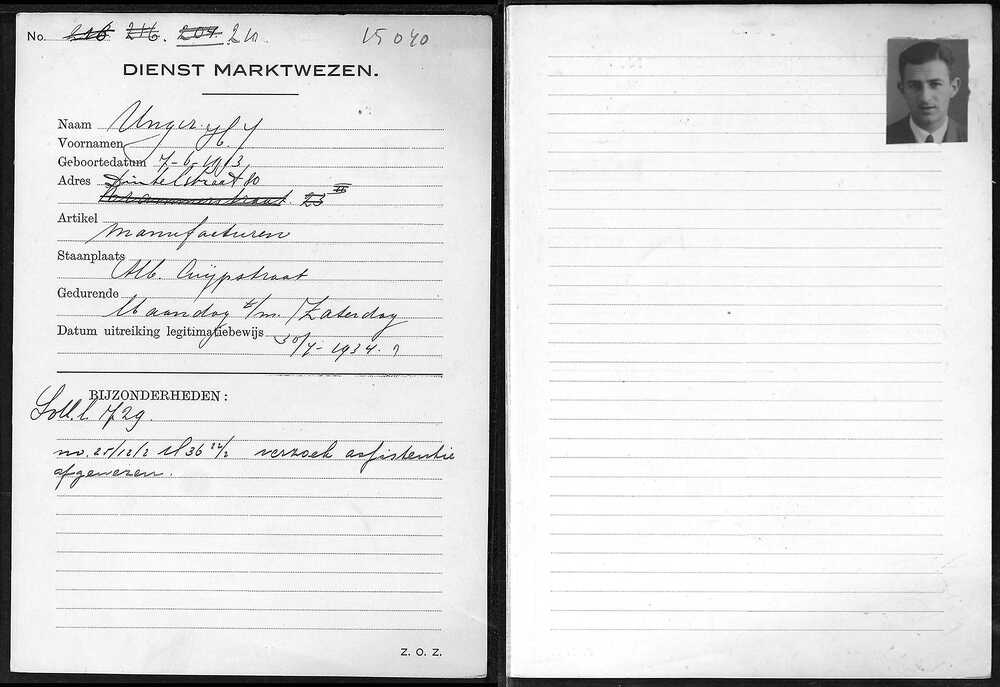 No. 216. 204. 210 15040
DIENST MARKTWEZEN.
Naam Unger
Voornamen
Geboortedatum 7-6-1913
Adres Dintelstraat 80
23 II
Artikel
Manufacturen
Staanplaats
Alb. Cuijpstraat
Gedurende
Maandag t/m Zaterdag
Datum uitreiking legitimatiebewijs
30/7-1934.
BIJZONDERHEDEN:
Soll. 1729.
no. 25/12/2 36 verzoek assistentie
afgewezen.
Z. O. Z.